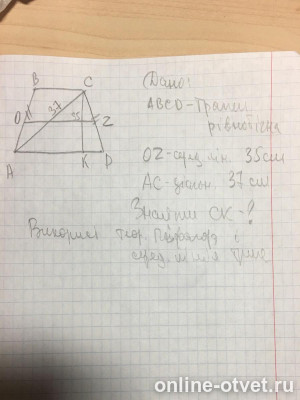 B
C
Дано:
ABCD - Трапец
рівнобічна
O
37
35
Z
OZ - серед. лін. 35 см
A
K
D
AC - діагон. 37 см
Знайти CK - ?
Використ теор. Піфагора і
серед. лінія
online-otvet.ru